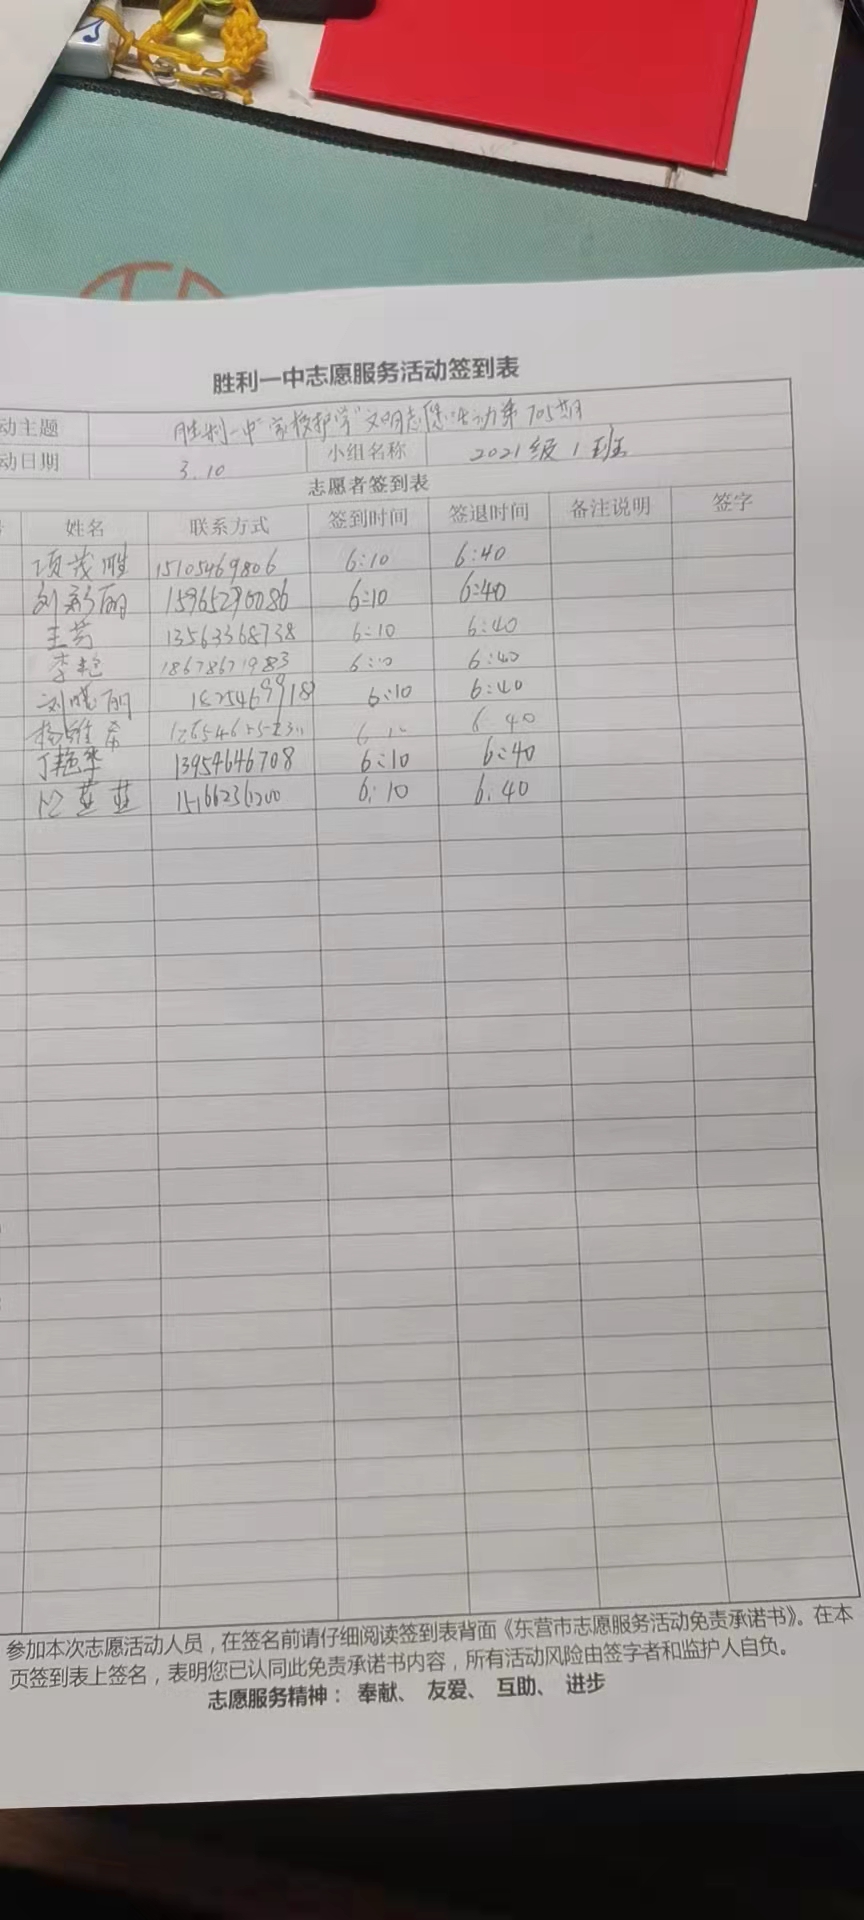 胜利一中志愿服务活动签到表
动主题 胜利一中"家校护学"文明志愿活动第705期
动日期 3.10 小组名称 2021级1班
志愿者签到表
姓名 联系方式 签到时间 签退时间 备注说明 签字
项茂胜 15105469806 6:10 6:40
刘彩丽 15965290086 6:10 6:40
王芳 13563368738 6:10 6:40
李艳 18678671983 6:10 6:40
刘晓丽 6:10 6:40
6 40
丁艳华 13954646708 6:10 6:40
6:10 6.40
参加本次志愿活动人员，在签名前请仔细阅读签到表背面《东营市志愿服务活动免责承诺书》。在本
页签到表上签名，表明您已认同此免责承诺书内容，所有活动风险由签字者和监护人自负。
志愿服务精神： 奉献、 友爱、 互助、 进步